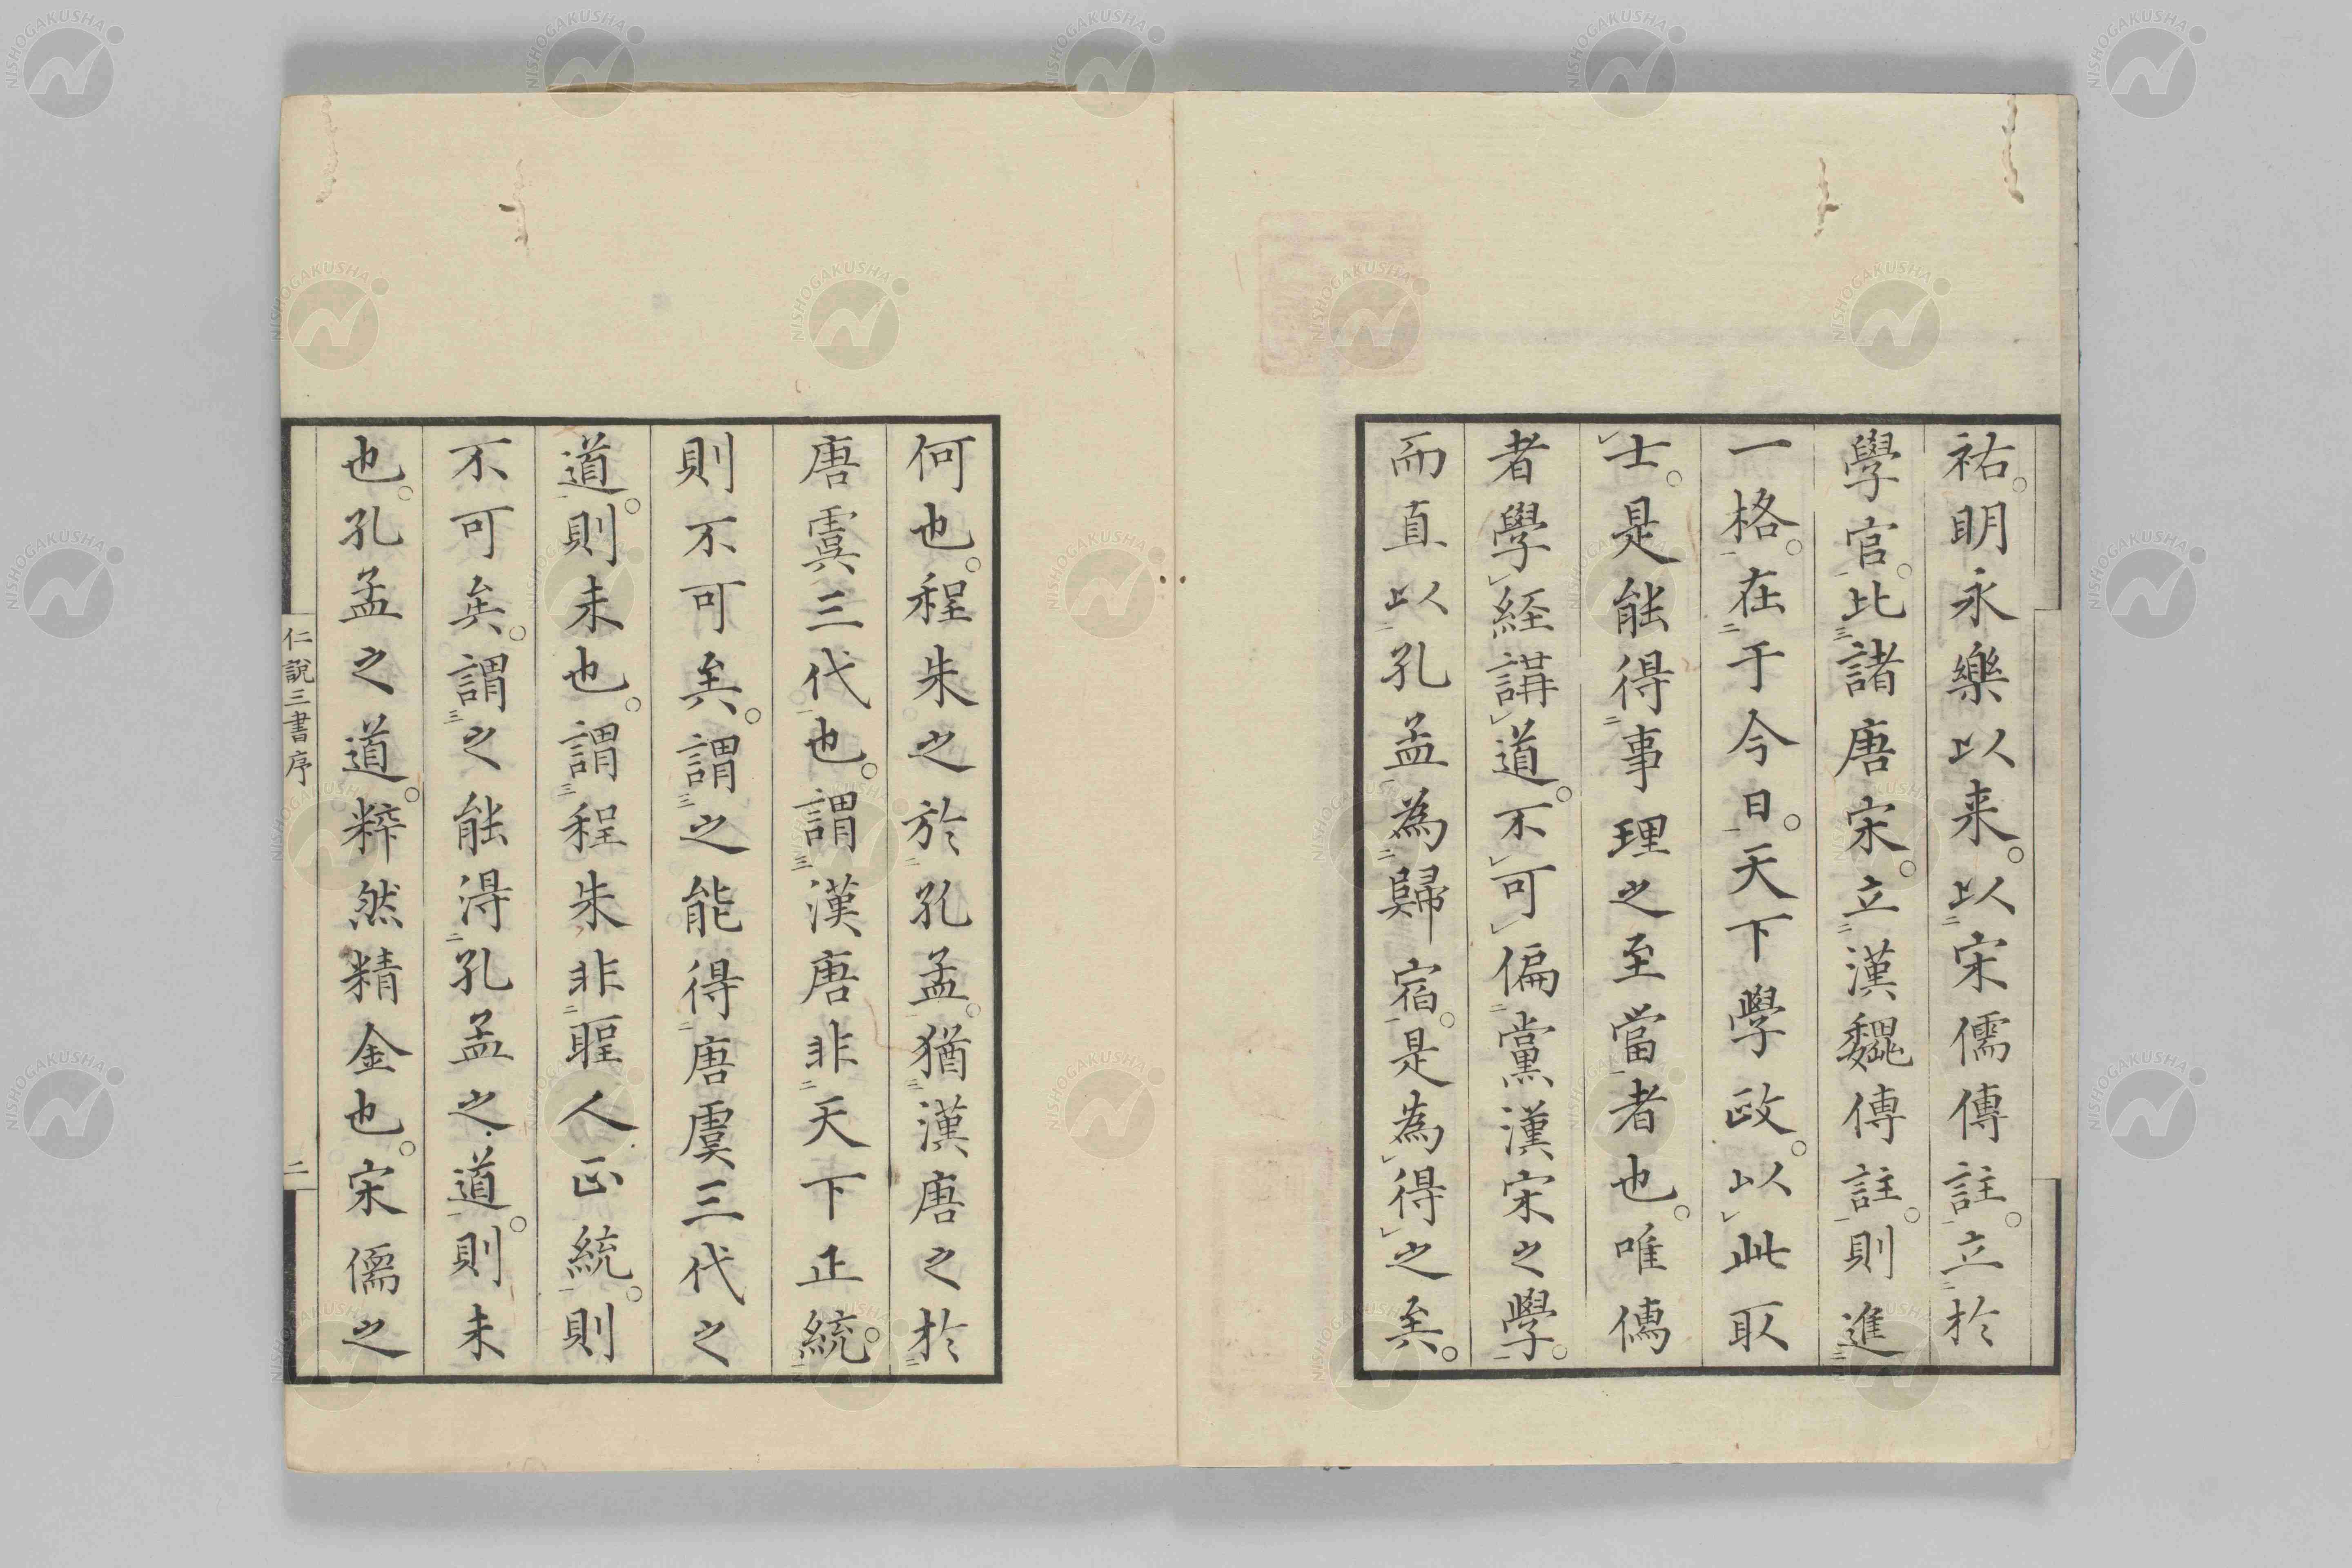 祐。明永樂以来。以宋儒傳註立於
學官。比諸唐宋。立漢魏傳註。則進
一格。在于今日。天下學政。以此取
士。是能得事理之至當者也。唯傳
者學経講道。不可偏黨漢宋之學。
而直以孔孟為歸宿。是為得之矣。
何也。程朱之於孔孟。猶漢唐之於
唐虞三代也。謂漢唐非天下正統。
則不可矣。謂之能得唐虞三代之
道。則未也。謂程朱非聖人正統。則
不可矣。謂之能得孔孟之道。則未
也。孔孟之道。粹然精金也。宋儒之
仁說三書序
二
NISHOGAKUSHA